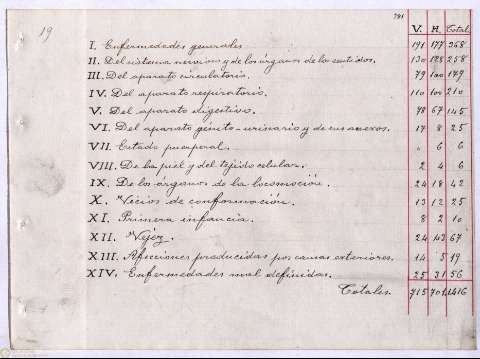 19
V. H. Total
I. Enfermedades generales 191 177 368
II. Del sistema nervioso y de los órganos de los sentidos. 130 128 258
III. Del aparato circulatorio. 79 100 179
IV. Del aparato respiratorio. 110 100 210
V. Del aparato digestivo. 78 67 145
VI. Del aparato genito-urinario y de sus anexos. 17 8 25
VII. Estado puerperal. " 6 6
VIII. De la piel y del tejido celular. 2 4 6
IX. De los órganos de la locomoción. 24 18 42
X. Vicios de conformación. 13 12 25
XI. Primera infancia. 8 2 10
XII. Vejez. 24 43 67
XIII. Afecciones producidas por causas exteriores. 14 5 19
XIV. Enfermedades mal definidas. 25 31 56
Totales. 715 701 1416